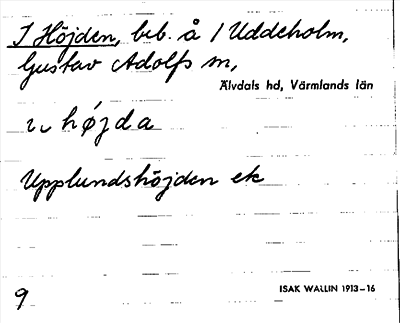 I Höjden, beb. å 1 Uddeholm,
Gustav Adolfs sn,
Älvdals hd, Värmlands län
höjda
Upplundshöjden ek
9
ISAK WALLIN 1913–16